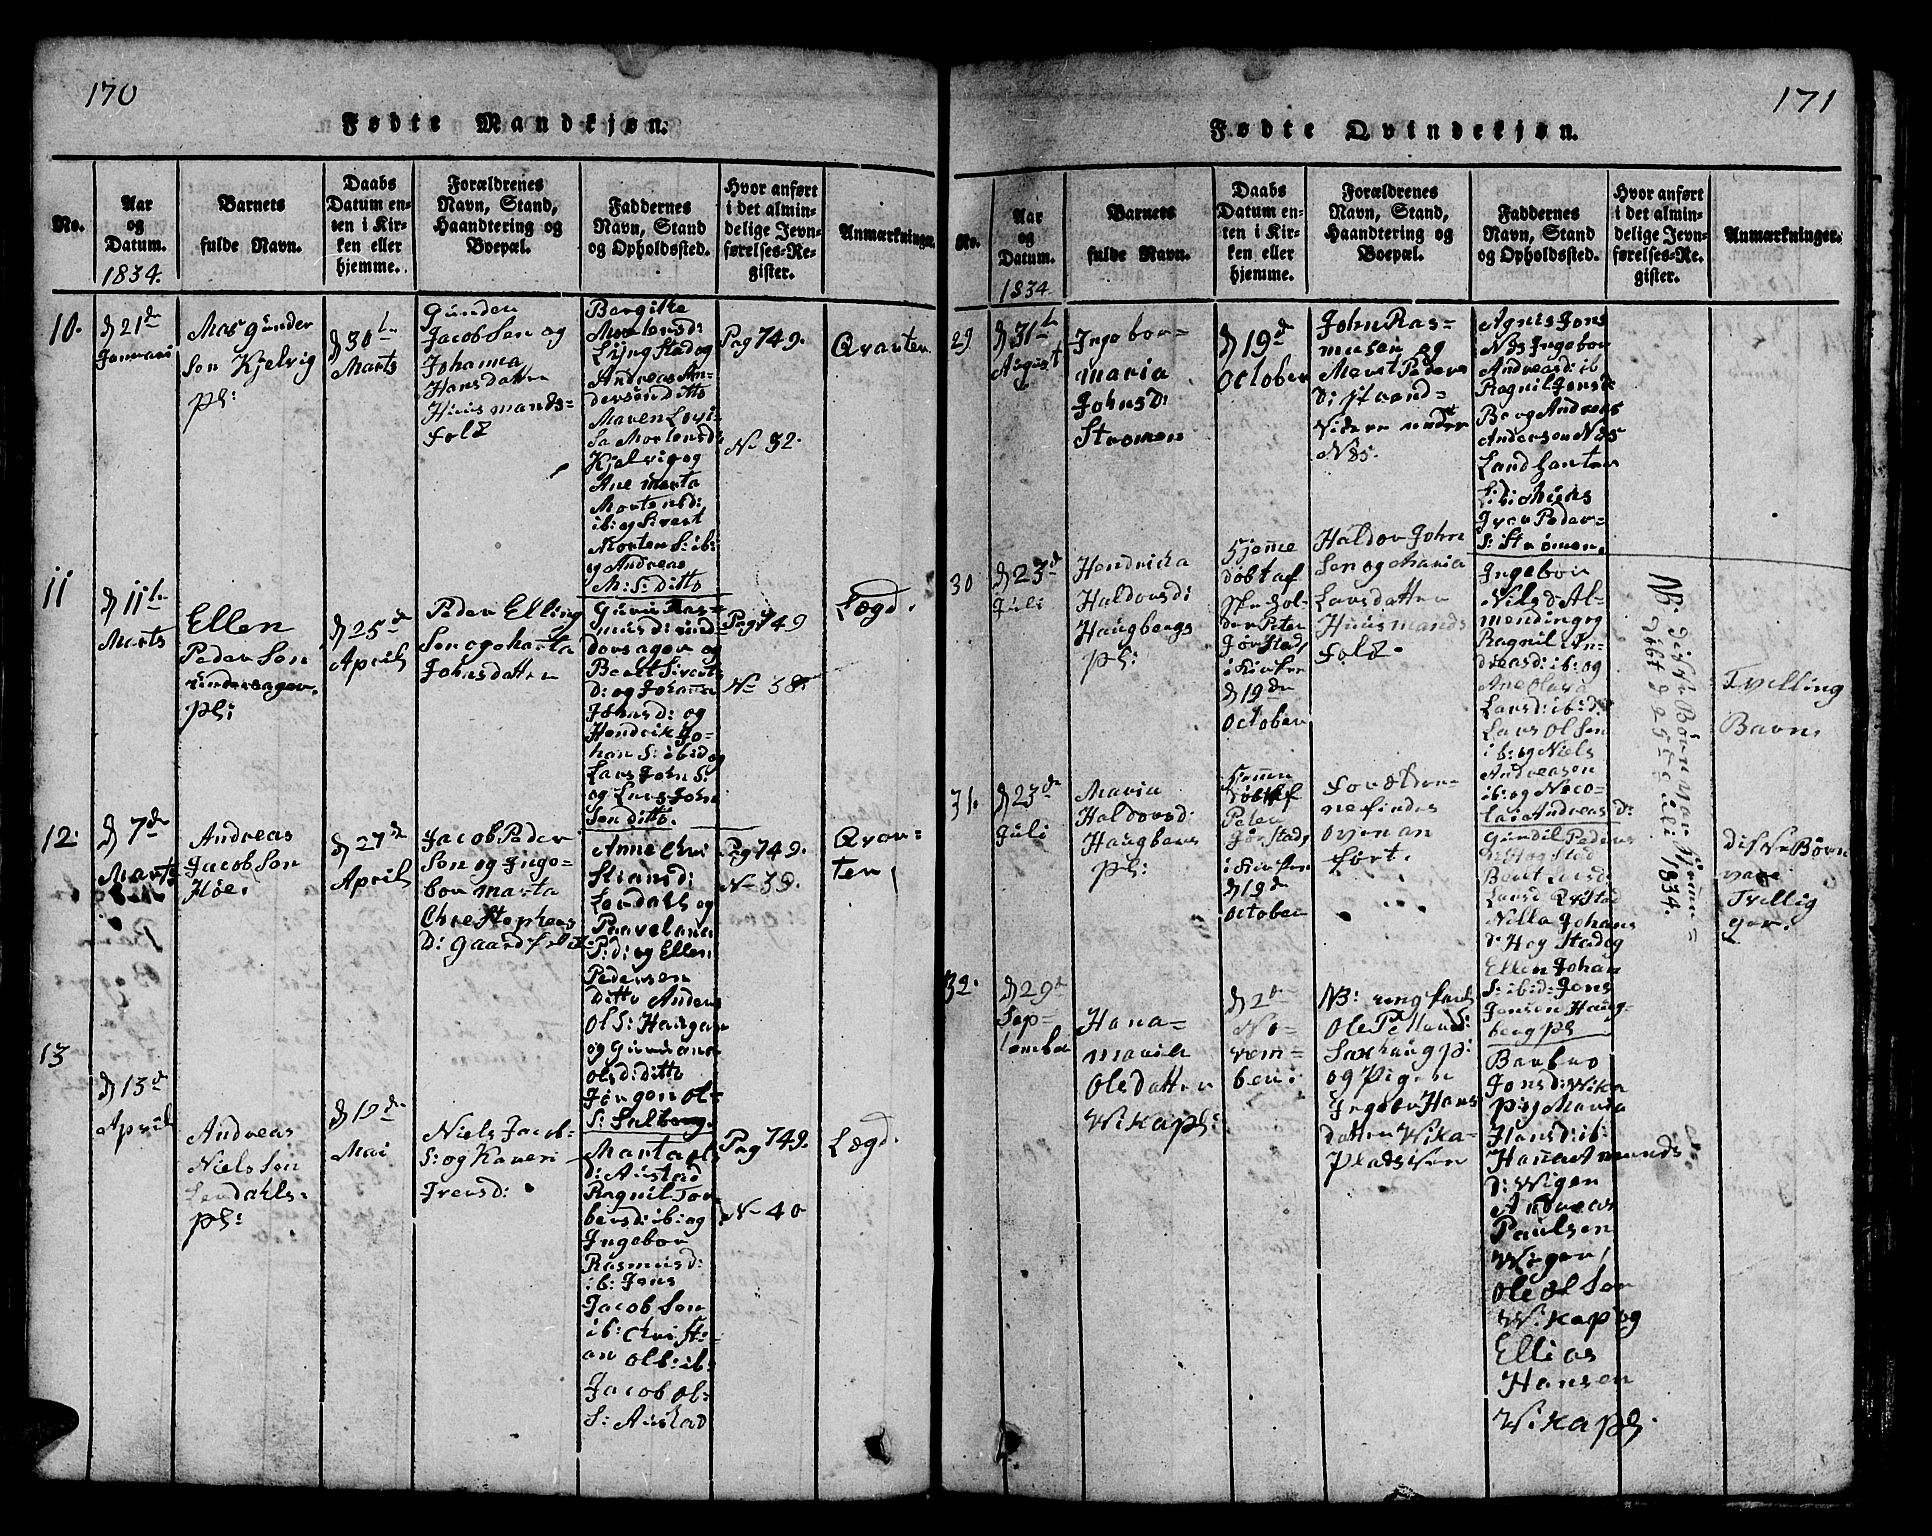 170
Fødte Mandkjøn.
No.
Aar
og
Datum.
1834.
Barnets
fulde Navn.
Daabs
Datum en-
ten i Kir-
ken eller
hjemme.
Forældrenes
Navn, Stand,
Haandtering og
Boepæl.
Faddernes
Navn, Stand
og Opholdssted.
Hvor anført
i det almin-
delige Jevn-
førelses-Re-
gister.
Anmærkninger.
10.
d 21de
Januari
Mas Gunder
Sen Kjelvig
pl:
d 30te
Marts
Gunder
Jacob Sen og
Johanna
Hansdatter
Huusmands=
Folk
Bergitte
Mortensd:
Lÿngstad og
Andreas An-
dersen ditto
Maren Lovi-
sa Mortensd:
Kjelvig og
Ane Marta
Mortensd:
ib: og Sivert
Morten S: ib:
og Andreas
M: S: Ditto
Pag 749.
No 32.
Qvarter.
11
d 11te
Marts
Ellen
Peder Sen
Undersager
pl:
d 25de
April
Peder Elling
Sen og Marta
Johnsdatter
Guru Ras=
musd: und
dersager og
Beret Siverts
d: og Johanna
Johnsd: og
Hendrik Jo-
han S: ibid og
Lars John S:
og Lars John
Sen ditto.
Pag 749
No 38
Lægd.
12.
d 7de
Marts
Andreas
Jacob Sen
Høe.
d 27de
April
Jacob Peder
Sen og Inge-
bor Marta
Christophers
D: Gaardfolk
Anne Chri
Stiansd:
Lordahl og
Paavelana
P: d: og Ellen
Pedersen
Ditto Anders
Ol S: Haugan
og Guruana
Olsd: ditto
Jørgen Ol=
S: Salberg.
Pag 749.
No 39.
Qvar=
ter,
13
d 13de
April
Andreas
Niels Sen
Lordahls=
pl:
d 19de
Mai
Niels Jacob-
S: og Karen
Iversd:
Marta ol
d: Austad
Ragnil Tor
bersd: ib: og
Ingebor
Rasmusd:
ib: Jens
Jacob Sen
ib: Christi-
an Ol S: ib:
Jacob ol=
S: Austad
Pag 749.
No 40
Lægd.
171
Fødte Qvindekjøn.
No.
Aar
og
Datum.
1834
Barnets
fulde Navn.
Daabs
Datum en-
ten i Kir-
ken eller
hjemme.
Forældrenes
Navn, Stand,
Haandtering og
Boepæl.
Faddernes
Navn, Stand
og Opholdssted.
Hvor anført
i det almin-
delige Jevn-
førelses-Re-
gister.
Anmærkninger.
29
d 31te
August
Ingebor=
maria
Johnsd:
Strømen
d 19de
October
John Ras=
musen og
Meret Peders
D: Strand=
Sidere under
Nøs.
Agnis Jons
Nøs Ingebor
Andreasd: ib
Ragnil Jonsd:
Be og Andreas
Anderson Nøs
Landhanter
Iver Peder=
S: Strømen.
30
d 23de
Juli
Hendricka
Haldorsd:
Haugbergs
pl:
Hjeme
døbt af
Skeholder
Peter
Jørstad,
i Kirken
d 19de
October
Haldor John
Sen og Maria
Larsdatter
Huusmands
Folk.
Ingebor
Nielsd: Al-
mending og
Ragnil An-
dreasd: ib: og
Ane Olasd
Larsd: ibid:
Lars Ol Sen
ib: og Niels
Andreasen
ib: og Nico-
lai Andreas d:
NB: disse Børn var Hjeme=
døbt d 25de Juli 1834.
Tvelling
Barn,
31.
d 23de
Juli
Maria
Haldorsd:
Haugbers
pl:
Hjemme
døbt af
Peter
Jørstad,
i Kirken
d 19de
October
Forældre-
ne findes
ovenan
ført.
Gundil Peders
d: Hogstad
Beret Larsd:
Larsd Qvstad
Nilla Johans
d: Hog Stad og
Ellen Johan
S: ibid: Jons
Jensen Haug-
berg pl
disse Børn
vare
Tvellig
ger.
32.
d 29de
Sep-
tember
Hana=
maria
Olsdatter
Wika pl:
d 2de
No-
vem=
ber:
NB: ungkarl
Ole Petter S:
Saxhaug p:
og Pigen
Ingebr Hans
datter Wika=
Pladsen
Barbro
Jonsd: Wika
pig Maria
Hansd: ib:
Hana Amunds
d: Wigen
Andreas
Paulsen
Wigen,
Ole Ol Sen
Wika p og
Ellias
Hansen
Wika pl.